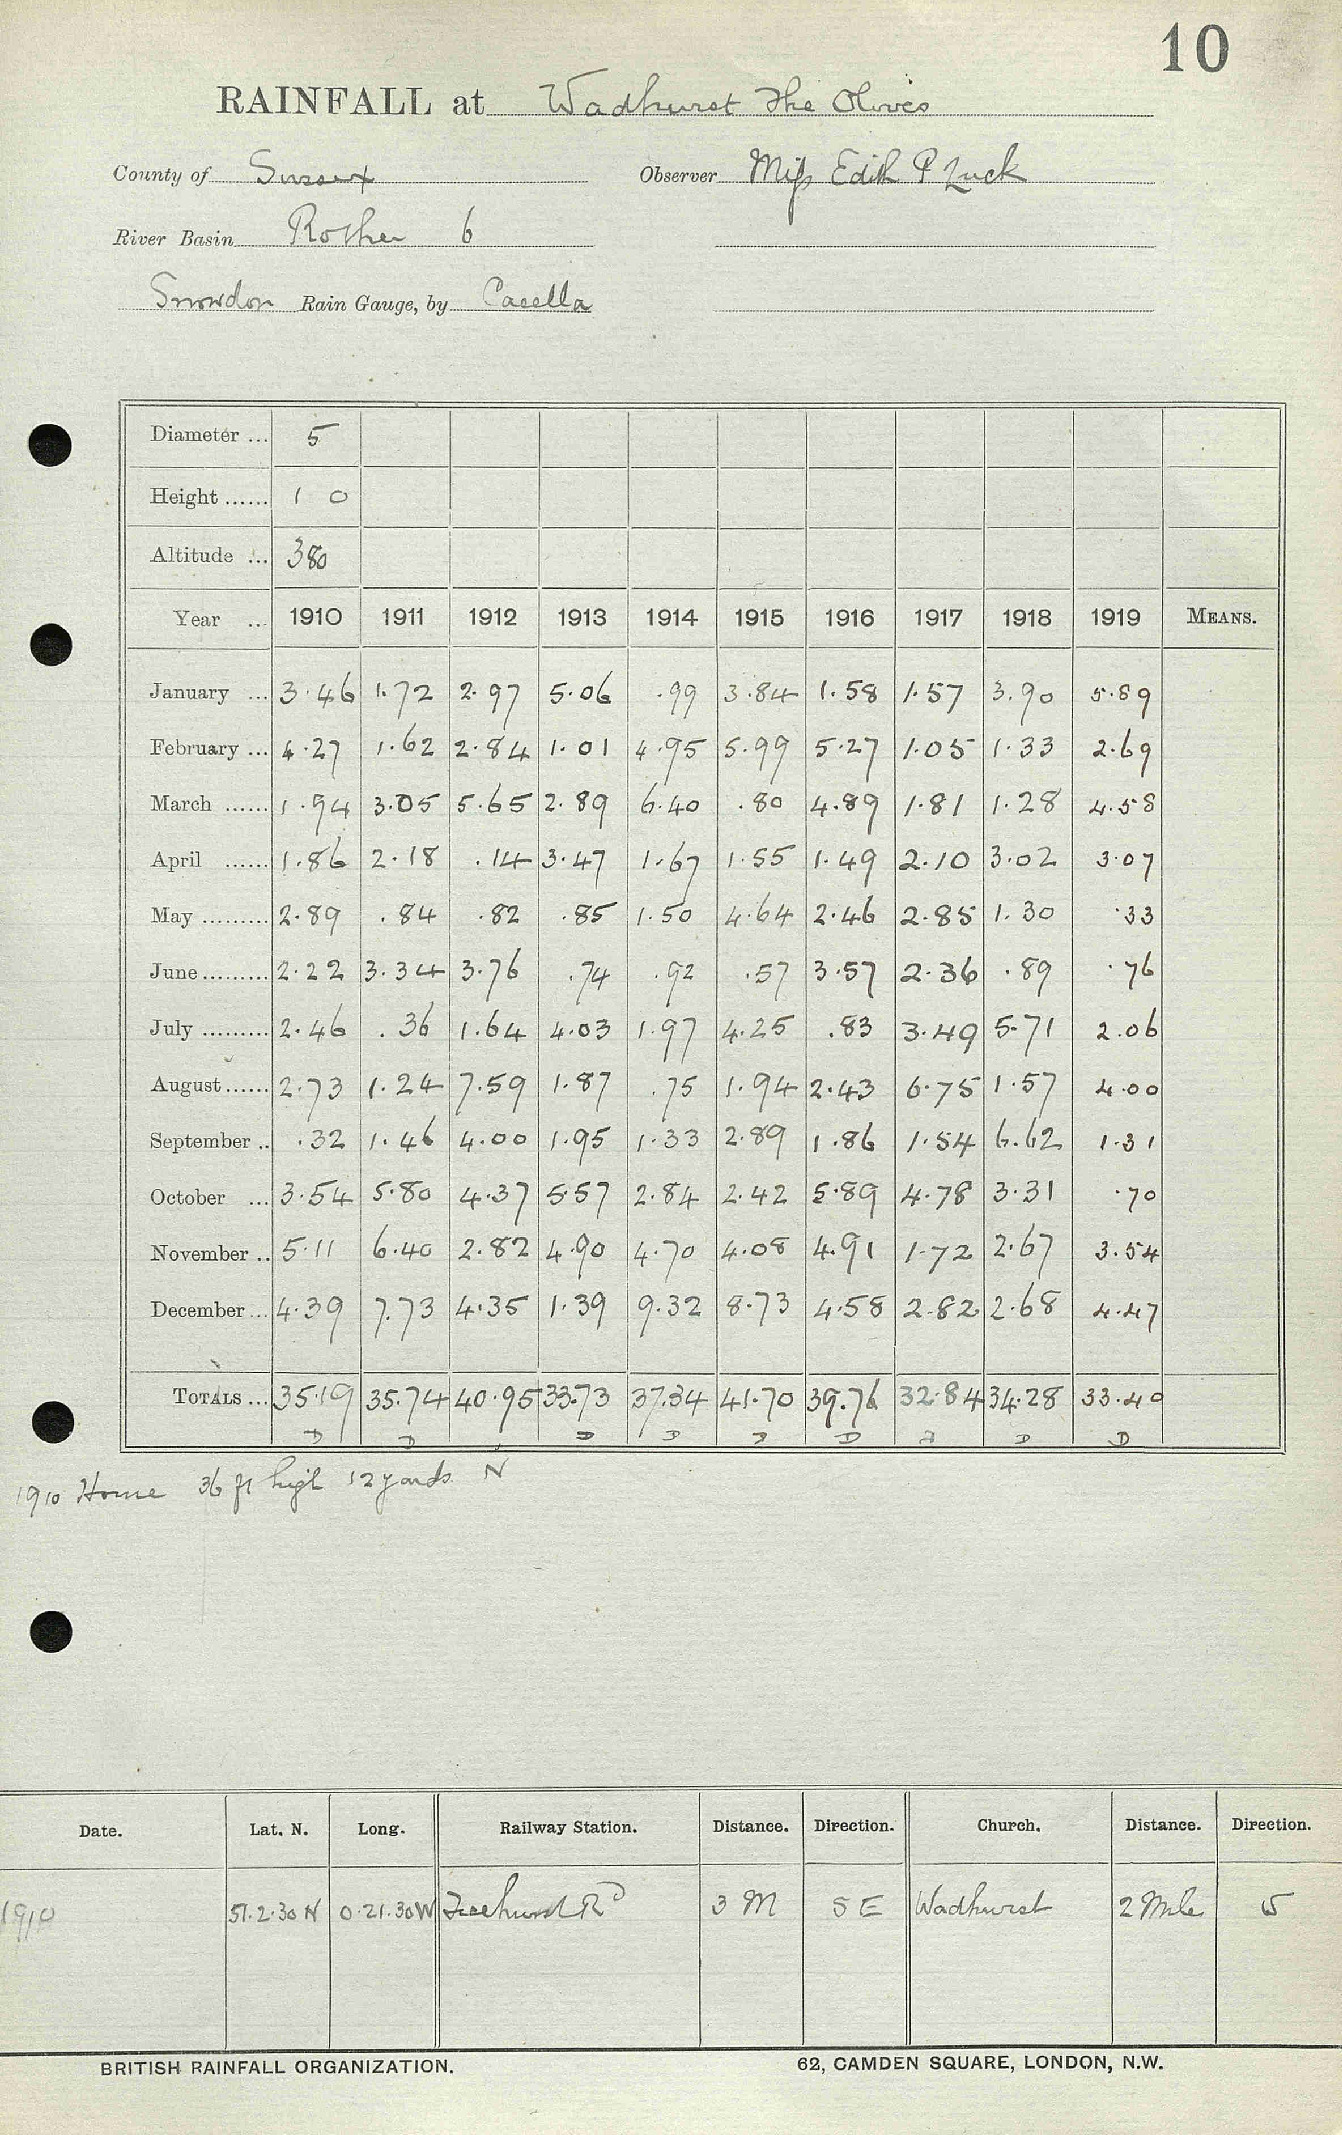 10
RAINFALL at Wadhurst The Olives
County of Sussex Observer Miss Edith P Luck
River Basin Rother 6
Snowdon Rain Gauge, by Casella
Diameter ... 5
Height ...... 1 0
Altitude ... 380
Year ... 1910 1911 1912 1913 1914 1915 1916 1917 1918 1919 MEANS.
January ... 3.46 1.72 2.97 5.06 .99 3.84 1.58 1.57 3.90 5.89
February ... 4.27 1.62 2.84 1.01 4.95 5.99 5.27 1.05 1.33 2.69
March ...... 1.94 3.05 5.65 2.89 6.40 .80 4.89 1.81 1.28 4.58
April ...... 1.86 2.18 .14 3.47 1.67 1.55 1.49 2.10 3.02 3.07
May ......... 2.89 .84 .82 .85 1.50 4.64 2.46 2.85 1.30 .33
June ......... 2.22 3.34 3.76 .74 .92 .57 3.57 2.36 .89 .76
July ......... 2.46 .36 1.64 4.03 1.97 4.25 .83 3.49 5.71 2.06
August ...... 2.73 1.24 7.59 1.87 .75 1.94 2.43 6.75 1.57 4.00
September .. .32 1.46 4.00 1.95 1.33 2.89 1.86 1.54 6.62 1.31
October ... 3.54 5.80 4.37 5.57 2.84 2.42 5.89 4.78 3.31 .70
November .. 5.11 6.40 2.82 4.90 4.70 4.08 4.91 1.72 2.67 3.54
December ... 4.39 7.73 4.35 1.39 9.32 8.73 4.58 2.82 2.68 4.47
TOTALS ... 35.19 35.74 40.95 33.73 37.34 41.70 39.76 32.84 34.28 33.40
D D D D D D D D D
1910 House 36 ft high 12 yards N
Date. Lat. N. Long. Railway Station. Distance. Direction. Church. Distance. Direction.
1910 51.2.30 N 0.21.30 W Rd 3 M S E Wadhurst 2 Mile S
BRITISH RAINFALL ORGANIZATION. 62, CAMDEN SQUARE, LONDON, N.W.